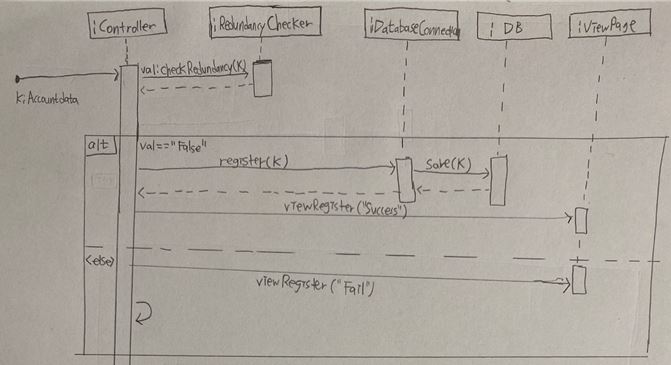 :Controller
:RedundancyChecker
:DatabaseConnection
: DB
:ViewPage
val:checkRedundancy(K)
K:Accountdata
alt
val=="False"
register(K)
Save(K)
viewRegister("Success")
<else>
viewRegister("Fail")